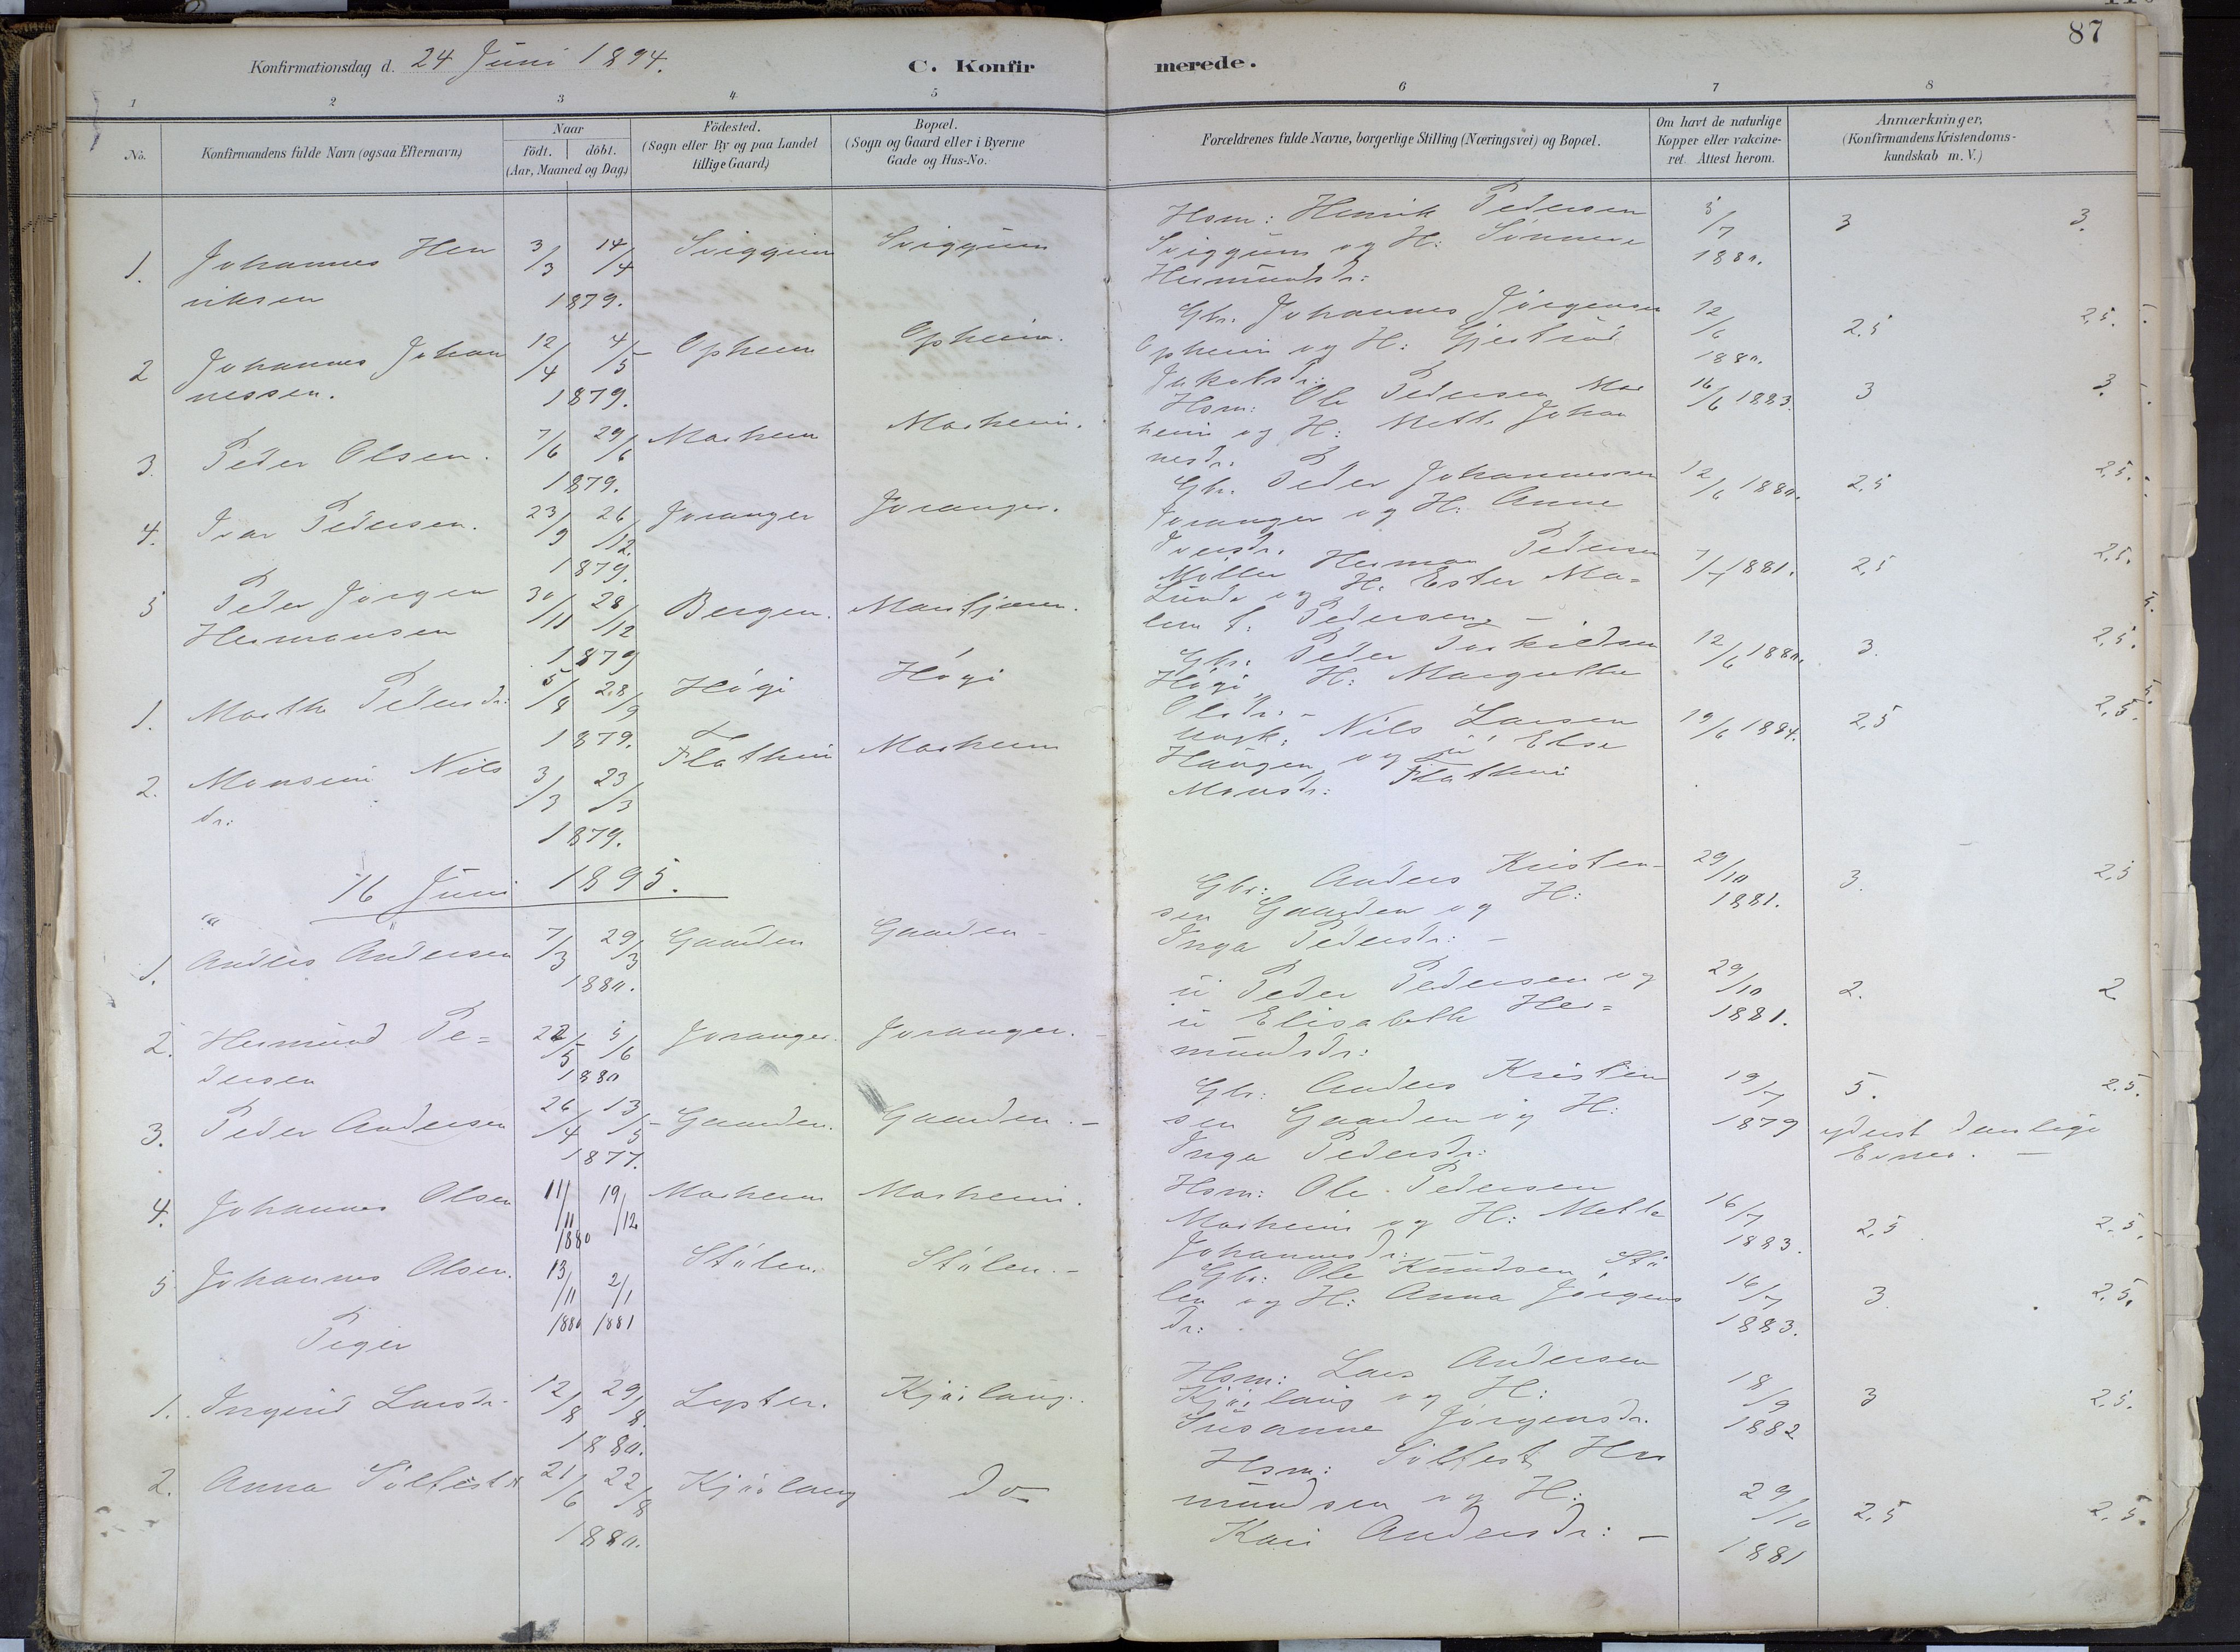 87
Konfirmationsdag d. 24 Juni 1894.
C. Konfirmerede.
1 2 3 4 5 6 7 8
No.
Konfirmandens fulde Navn (ogsaa Efternavn)
Naar
födt. döbt.
(Aar, Maaned og Dag.)
Födested.
(Sogn eller By og paa Landet
tillige Gaard)
Bopæl.
(Sogn og Gaard eller i Byerne
Gade og Hus-No.
Forældrenes fulde Navne, borgerlige Stilling (Næringsvei) og Bopæl.
Om havt de naturlige
Kopper eller vakcine-
ret. Attest herom.
Anmærkninger,
(Konfirmandens Kristendoms-
kundskab m. V.)
1. Johannes Hen 3/3 14/4 Sviggum Sviggum
riksen 1879.
Hsm: Henrik Pedersen 5/7 3 3.
Sviggum og H: Sünneve 1880.
Hermundsdr:
2 Johannes Johan 12/4 4/5 Opheim Opheim.
nessen. 1879.
Gbr. Johannes Jörgensen 12/6 2.5 2.5.
Opheim og H: Gjertrüd 1880.
Jakobsdr:
3. Peder Olsen. 7/6 29/6 Marheim Marheim.
1879.
Hsm: Ole Pedersen Mar 16/6 1883. 3 3.
heim og H: Mette Johan
nesdr:
4. Ivar Pedersen. 23/9 26/12. Joranger Joranger.
1879.
Gbr. Peder Johannessen 12/6 1880. 2.5 2.5.
Joranger og H: Anne
Iversdr.
5 Peder Jörgen 30/11 28/12 Bergen. Marifjæren.
Hermansen 1879
Möller Herman Pedersen 7/7 1881. 2.5 2.5.
Lunde og H. Ester Ma=
len f. Pedersen. -
1. Marthe Pedersdr: 5/8 28/9 Högi Högi
1879.
Gbr: Peder Torkildsen 12/6 1880. 3. 2.5.
Högi H: Margrethe
Olsdr. -
2. Monsine Nils 3/3 23/3 Flathun Marheim
dr: 1879.
Ungk: Nils Larsen 19/6 1884. 2.5 2.5.
Haugen og ü Else
Monsdr: Flathun
16 Juni 1895.
1. Anders Andersen 7/3 29/3 Gaarden Gaarden -
1880.
Gbr: Anders Kristen- 29/10 3. 2.5
sen Gaarden og H: 1881.
Inga Pedersdr: -
2. Hermund Pe= 22/5 5/6 Joranger. Joranger.
dersen 1880
ü Peder Pedersen og 29/10 2. 2
ü Elisabeth Her= 1881.
mundsdr:
3. Peder Andersen 26/4 13/5 Gaarden. Gaarden. -
1877.
Gbr: Anders Kristen 19/7 5. 2.5.
sen Gaarden og H: 1879 yderst daarlige
Inga Pedersdr: Evner. -
4. Johannes Olsen 11/11 19/12 Marheim Marheim.
1880
Hsm: Ole Pedersen 16/7
Marheim og H: Mette 1883. 2.5 2.5.
Johannesdr:
5 Johannes Olsen. 13/11 2/1 Stölen. Stölen. -
1880 1881
Gbr: Ole Knudsen Stö 16/7 3 2.5.
len og H: Anna Jörgens 1883.
dr:
Piger
1. Ingerid Larsdr. 12/8 29/8. Lyster. Kjörlaug.
1880.
Hsm: Lars Andersen 18/9 3 2.5.
Kjörlaug og H: 1882
Susanne Jörgensdr.
2. Anna Sülfestdr 21/6 22/8 Kjörlaug do
1880.
Hsm: Sülfest Her
mundsen og H: 29/10 2.5 2.5.
Kari Andersdr: - 1881